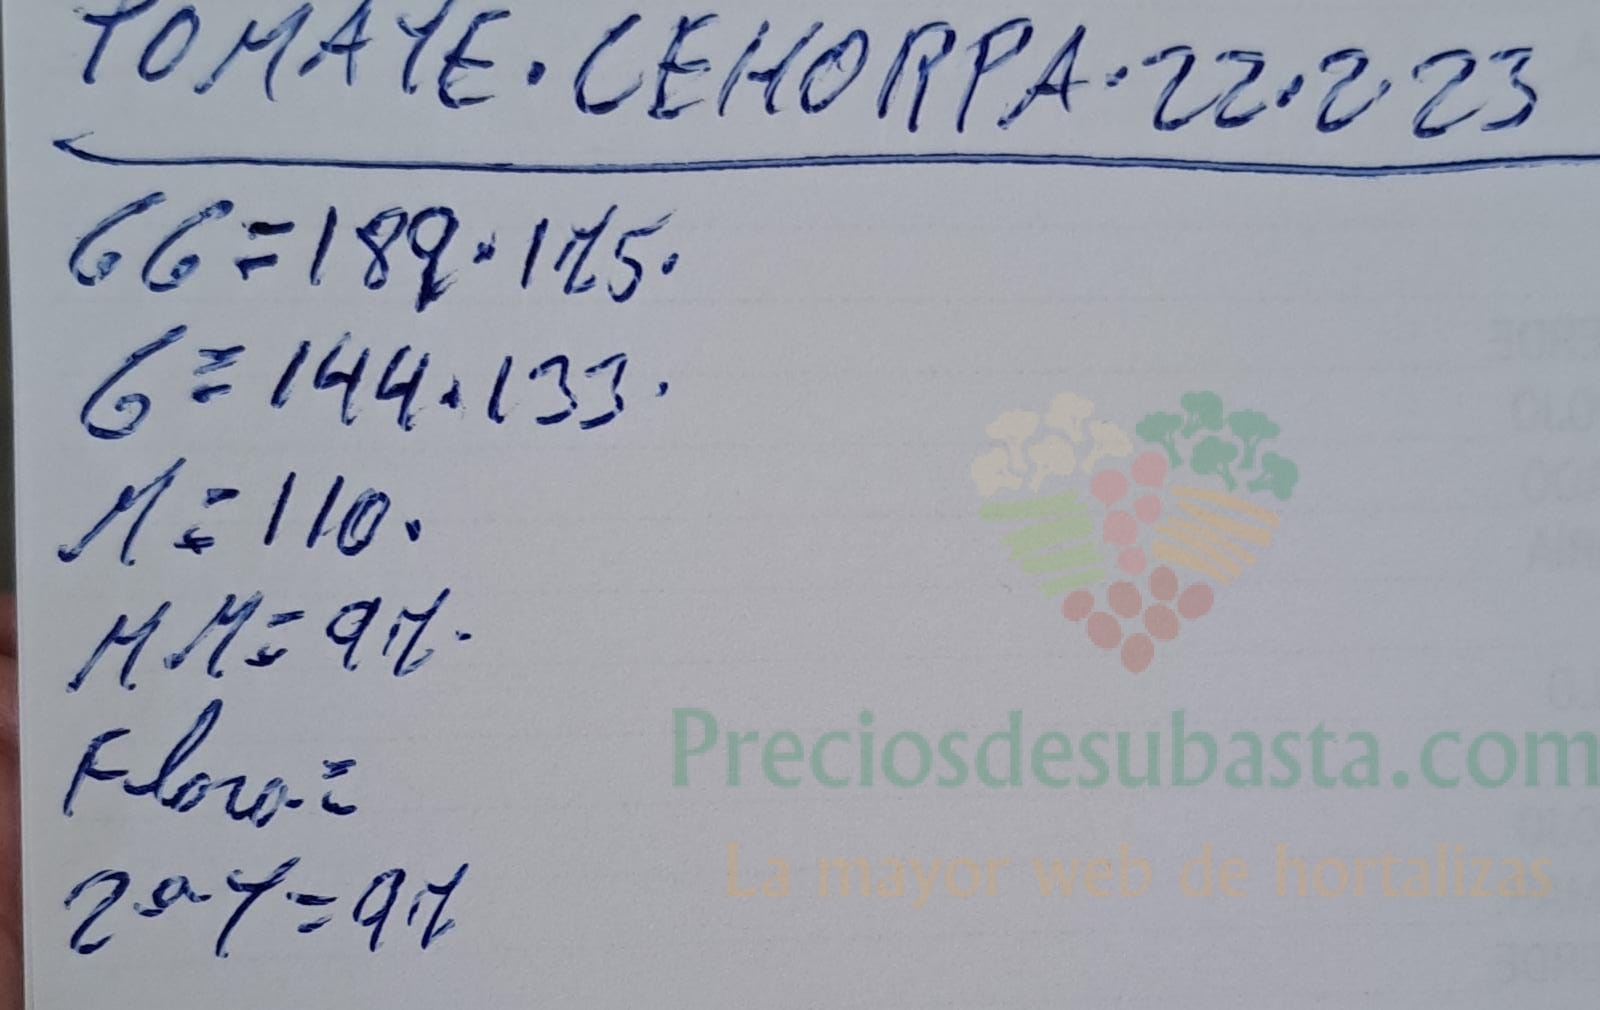 TOMATE.CEHORPA.22.2.23
GG=189.175.
G=144.133.
M=110.
MM=97.
Flora=
2ª-T=97
Preciosdesubasta.com
La mayor web de hortalizas